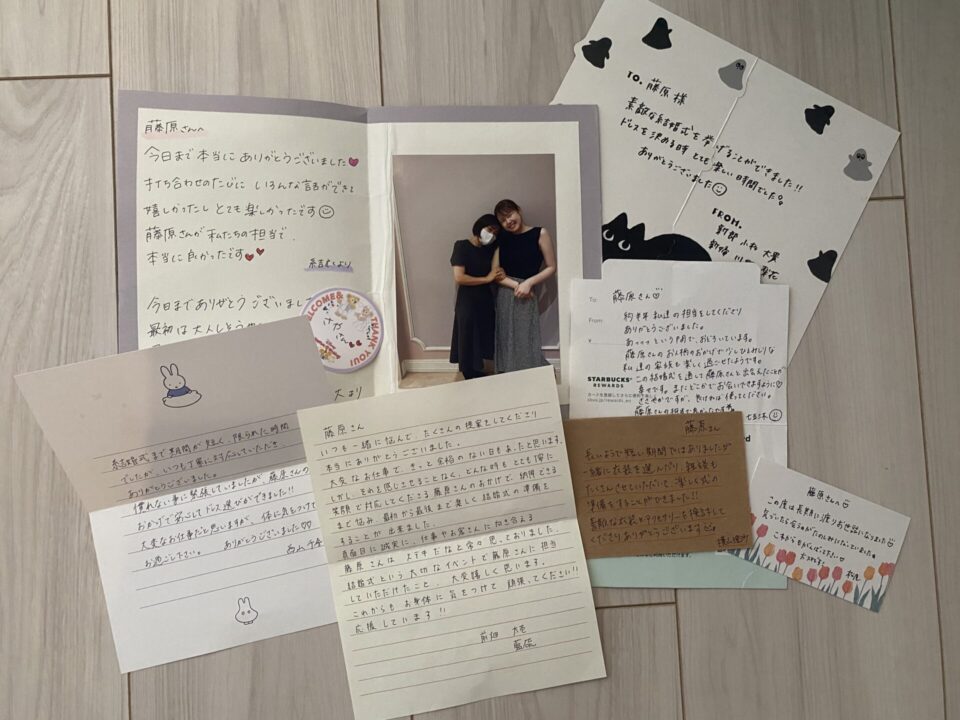 藤原さんへ
今日まで本当にありがとうございました
打ち合わせのたびに いろんな話ができて
嬉しかったし とても楽しかったです
藤原さんが私たちの担当で、
本当に良かったです
結むより
今日までありがとうございまし
最初は大人しそう
大より
WELCOME&
THANK YOU!
TO. 藤原様
素敵な結婚式を挙げることができました!!
ドレスを決める時とても楽しい時間でした
ありがとうございました
FROM.
新郎 小松 大
新婦 川
To
藤原さん
From
約半年 私達の担当をしてくださり
ありがとうございました。
あっっっという間で、おどろいています。
藤原さんのお人柄のおかげで少しひとみしりな
私達の家族も楽しく過ごせたようです。
この結婚式を通して藤原さんと出会えたことが
幸せです。またどこかでお会いできますように
ささやかですが、良ければ使ってください。
藤原さんの担当で良かったです
STARBUCKS®
REWARDS
結婚式まで期間が短く、限られた時間
でしたが、いつも丁寧に対応していただき
ありがとうございました。
慣れない事に緊張していましたが、藤原さんの
おかげで安心してドレス選びができました!!
大変なお仕事だと思いますが、体に気をつけて
お過ごし下さい。 ありがとうございました
西山
藤原さん
いつも一緒に悩んで、たくさんの提案をしてくださり
本当にありがとうございました。
大変なお仕事で、きっと余裕のない日もあったと思います。
しかし、それを感じさせることなく、どんな時もとても丁寧に
笑顔で対応してくださる藤原さんのおかげで、納得できる
まで悩み、最初から最後まで楽しく結婚式の準備を
することが出来ました。
真面目に誠実に、仕事やお客さんに向き合える
藤原さんは ステキだなと常々思っておりました。
結婚式という大切なイベントで藤原さんに担当
していただけたこと、 大変嬉しく思います。
これからも お身体に 気をつけて 頑張ってください!!
応援しています!!
前畑 大
藤原さん
長いようで短い期間ではありましたが
一緒に衣装を選んだり、親族も
たくさんさせていただいて 楽しく式の
準備をすることができました!!
素敵なお衣とアクセサリーを提案して
くださりありがとうございます
横山
藤原さん
この度は長期に渡りお世話になりました